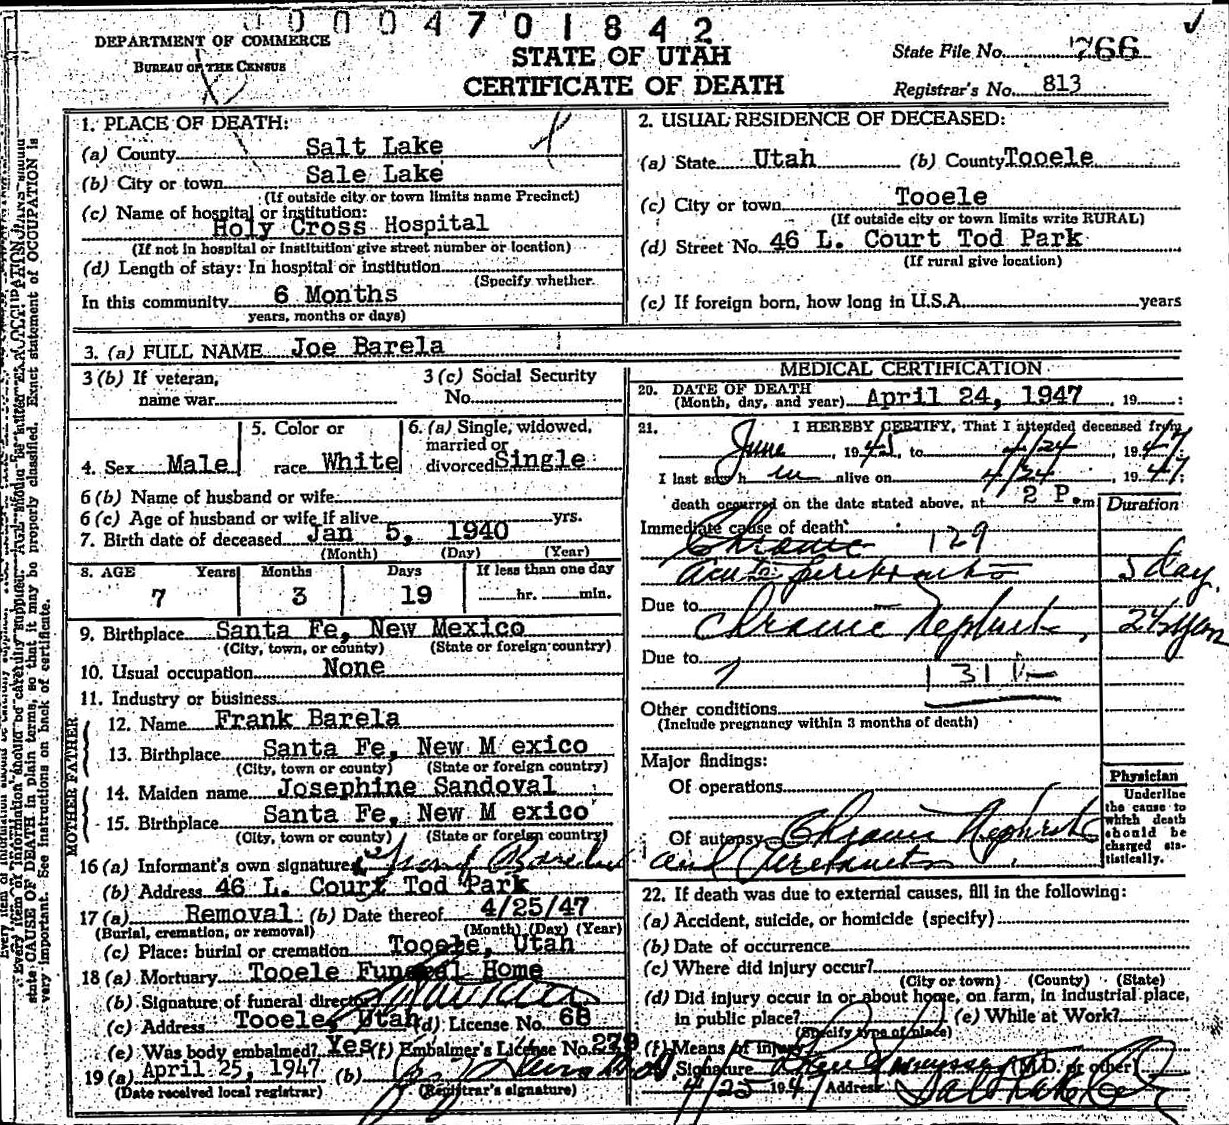 00004701842
DEPARTMENT OF COMMERCE
BUREAU OF THE CENSUS
STATE OF UTAH
CERTIFICATE OF DEATH
State File No. 766
Registrar's No. 813
1. PLACE OF DEATH:
(a) County Salt Lake
(b) City or town Sale Lake
(If outside city or town limits name Precinct)
(c) Name of hospital or institution:
Holy Cross Hospital
(If not in hospital or institution give street number or location)
(d) Length of stay: In hospital or institution
(Specify whether
In this community 6 Months
years, months or days)
2. USUAL RESIDENCE OF DECEASED:
(a) State Utah (b) County Tooele
(c) City or town Tooele
(If outside city or town limits write RURAL)
(d) Street No. 46 L. Court Tod Park
(If rural give location)
(e) If foreign born, how long in U.S.A. years
3. (a) FULL NAME Joe Barela
3 (b) If veteran, name war
3 (c) Social Security No.
4. Sex Male
5. Color or race White
6. (a) Single, widowed, married or divorced Single
6 (b) Name of husband or wife
6 (c) Age of husband or wife if alive yrs.
7. Birth date of deceased Jan 5, 1940
(Month) (Day) (Year)
8. AGE Years Months Days If less than one day
7 3 19 hr. min.
9. Birthplace Santa Fe, New Mexico
(City, town, or county) (State or foreign country)
10. Usual occupation None
11. Industry or business
FATHER
12. Name Frank Barela
13. Birthplace Santa Fe, New M exico
(City, town or county) (State or foreign country)
MOTHER
14. Maiden name Josephine Sandoval
15. Birthplace Santa Fe, New M exico
(City, town or county) (State or foreign country)
16 (a) Informant's own signature Barela
(b) Address 46 L. Court Tod Park
17 (a) Removal (b) Date thereof 4/25/47
(Burial, cremation, or removal) (Month) (Day) (Year)
(c) Place: burial or cremation Tooele, Utah
18 (a) Mortuary Tooele Funeral Home
(b) Signature of funeral director
(c) Address Tooele, Utah (d) License No. 68
(e) Was body embalmed? Yes (f) Embalmer's License No. 279
19 (a) April 25, 1947 (b)
(Date received local registrar) (Registrar's signature)
MEDICAL CERTIFICATION
20. DATE OF DEATH
(Month, day, and year) April 24, 1947, 19
21. I HEREBY CERTIFY, That I attended deceased from
June, 1945, to 4/24, 1947
I last saw h im alive on 4/24, 1947
death occurred on the date stated above, at 2 P.m
Duration
Immediate cause of death: 129
Chronic
acute peritonitis 5 day
Due to
Chronic Nephritis, 2 1/2 years
Due to
131
Other conditions
(Include pregnancy within 3 months of death)
Major findings:
Of operations
Of autopsy Chronic Nephritis
and Peritonitis
Physician
Underline the cause to which death should be charged statistically.
22. If death was due to external causes, fill in the following:
(a) Accident, suicide, or homicide (specify)
(b) Date of occurrence
(c) Where did injury occur?
(City or town) (County) (State)
(d) Did injury occur in or about home, on farm, in industrial place,
in public place? (e) While at Work?
(Specify type of place)
(f) Means of injury
Signature (M.D. or other)
4/25 1947 Address Salt Lake City
state CAUSE OF DEATH in plain terms, so that it may be properly classified. Exact statement of OCCUPATION is
very important. See instructions on back of certificate.